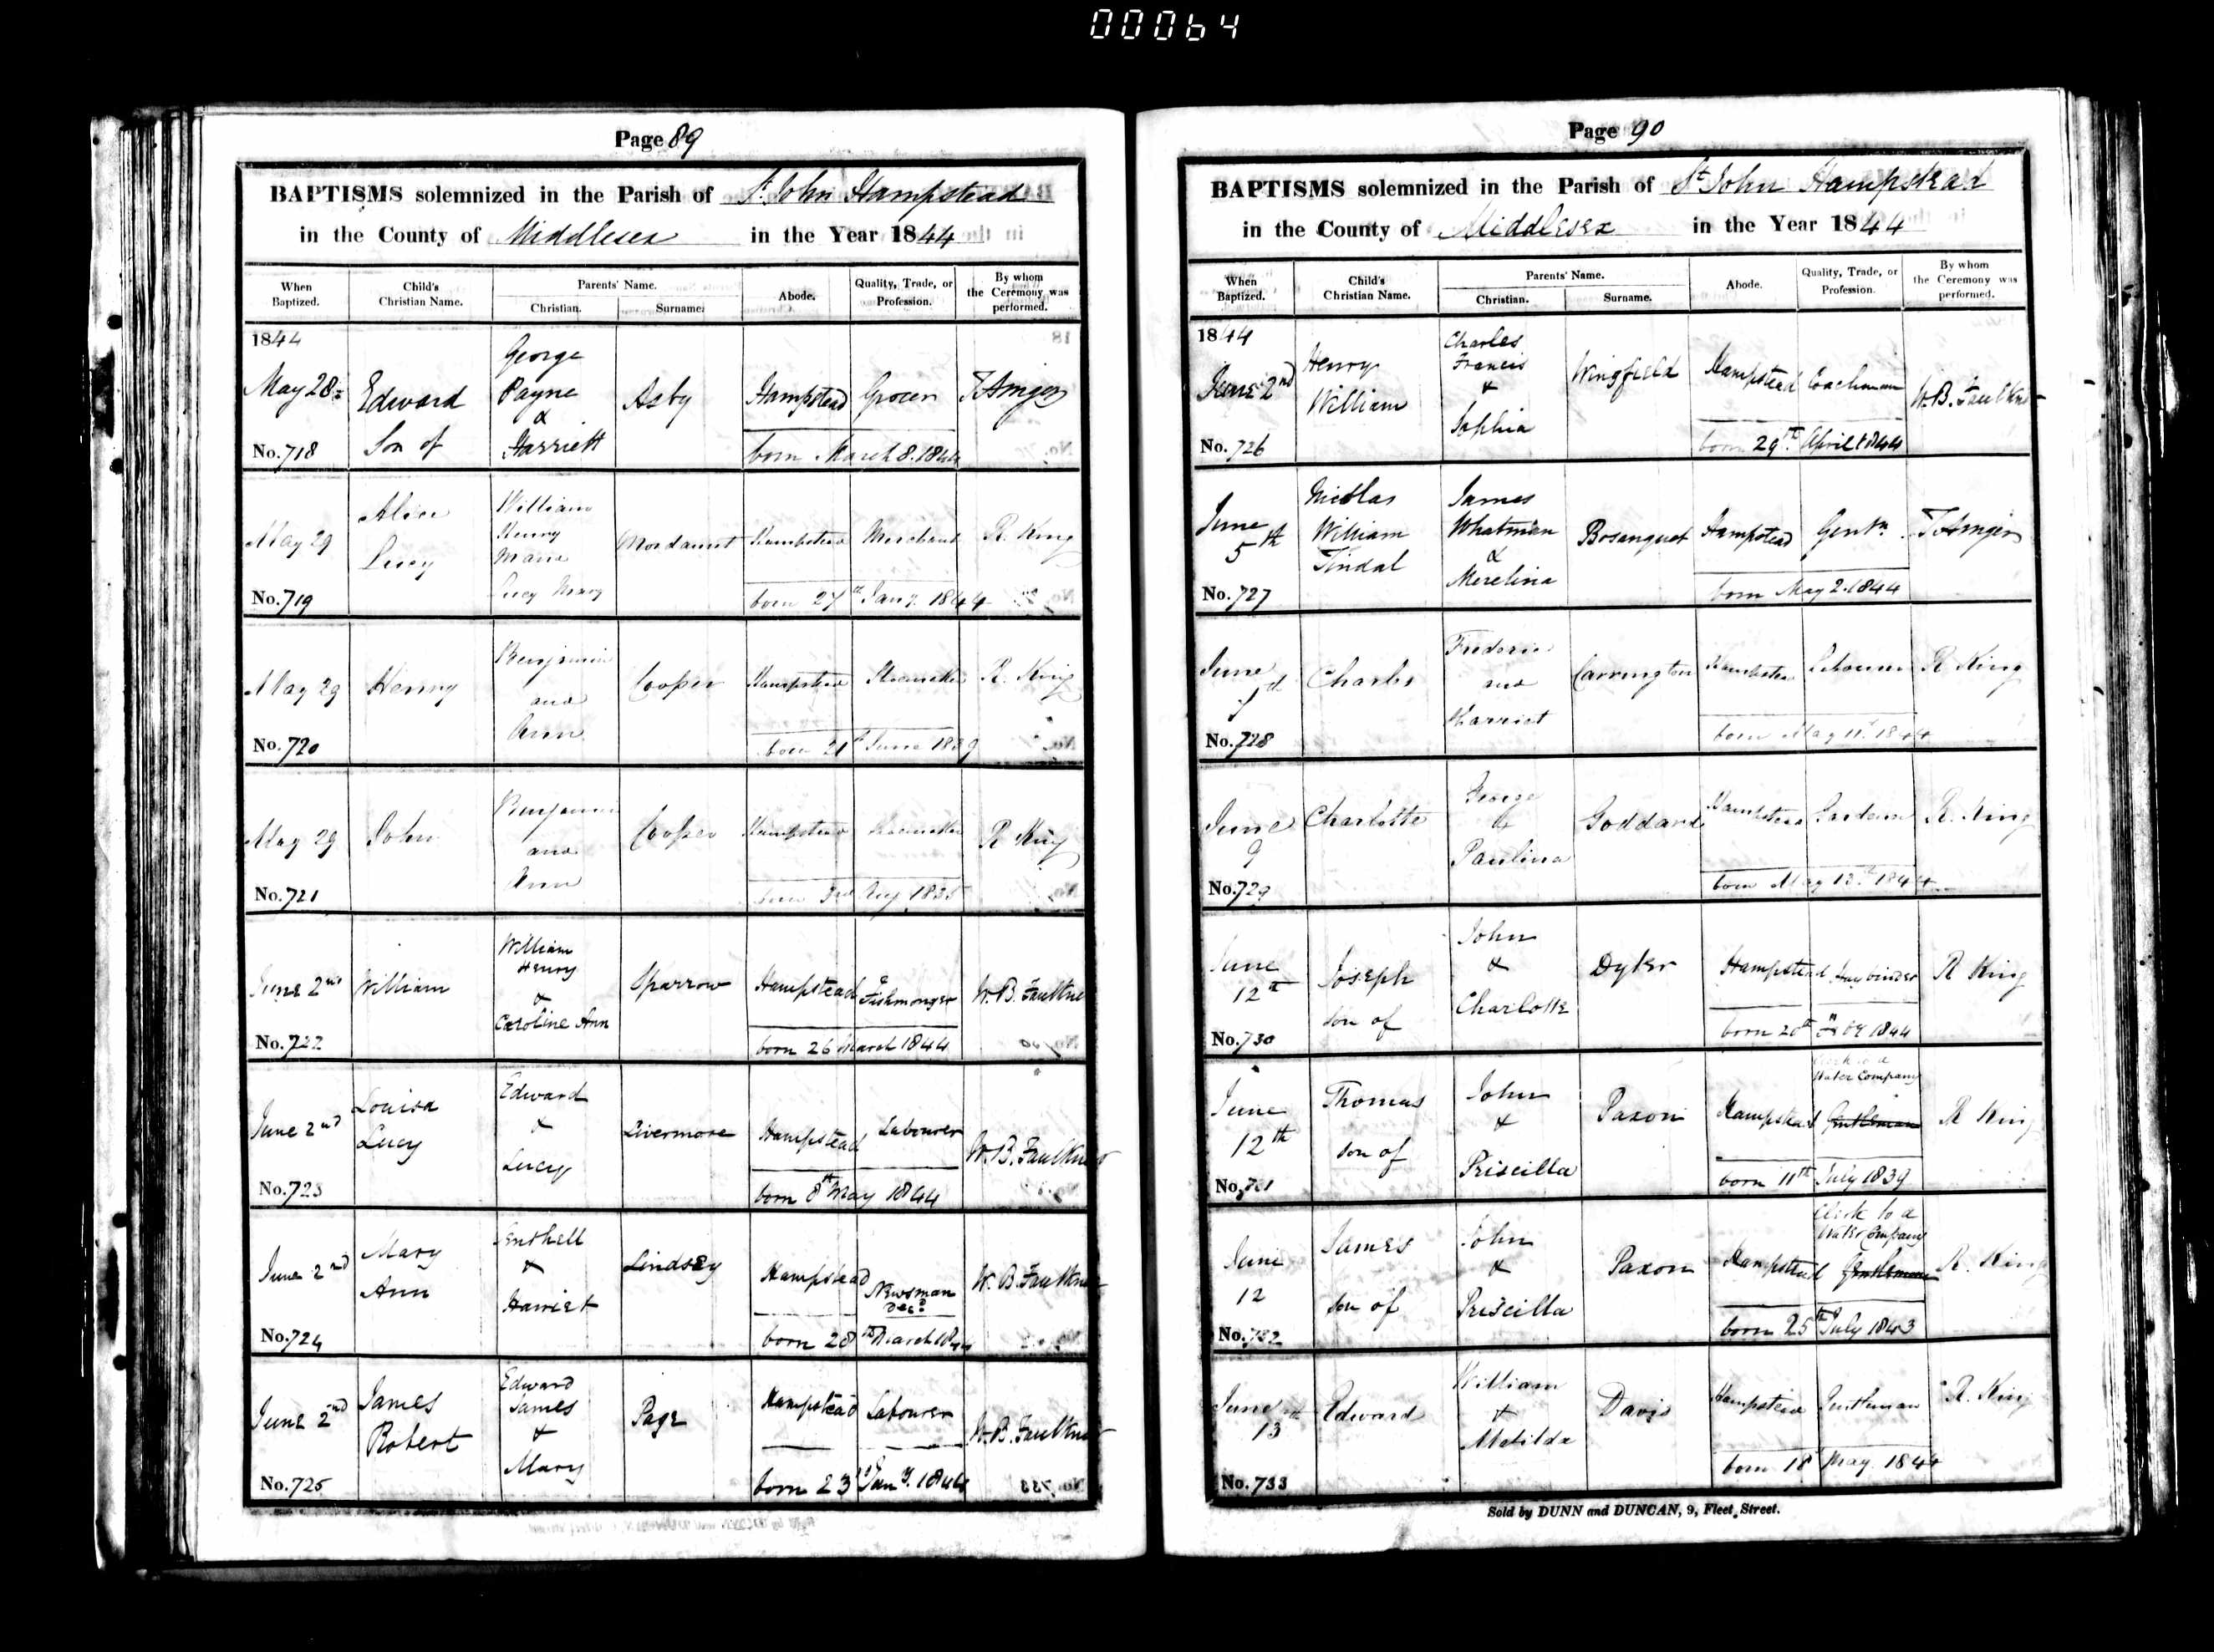 000064
Page 89
BAPTISMS solemnized in the Parish of St. John Hampstead
in the County of Middlesex in the Year 1844
When Baptized. Child's Christian Name. Parents' Name. Christian. Surname. Abode. Quality, Trade, or Profession. By whom the Ceremony was performed.
1844
May 28 Edward Son of George Payne & Harriett Asby Hampstead Grocer T Ainger
No. 718 born March 8. 1844
May 29 Alice Lucy William Henry Lucy Mary Mordaunt Hampstead Merchant R. King
No. 719 born 27th Jany. 1844
May 29 Henry Benjamin and Ann Cooper Hampstead Shoemaker R. King
No. 720 born 21st June 1839
May 29 John Benjamin and Ann Cooper Hampstead Shoemaker R King
No. 721 born 3rd 1835
June 2nd William William Henry & Caroline Ann Sparrow Hampstead Fishmonger W. B. Faulkner
No. 722 born 26 March 1844
June 2nd Louisa Lucy Edward & Lucy Livermore Hampstead Labourer W. B. Faulkner
No. 723 born 8th May 1844
June 2nd Mary Ann & Harriet Lindsey Hampstead Newsman Decd W. B. Faulkner
No. 724 born 28th March 1844
June 2nd James Robert Edward James & Mary Page Hampstead Labourer W. B. Faulkner
No. 725 born 23d Jany. 1844
Page 90
BAPTISMS solemnized in the Parish of St John Hampstead
in the County of Middlesex in the Year 1844
When Baptized. Child's Christian Name. Parents' Name. Christian. Surname. Abode. Quality, Trade, or Profession. By whom the Ceremony was performed.
1844
June 2nd Henry William Charles Francis & Sophia Wingfield Hampstead Coachman W. B. Faulkner
No. 726 born 29th. April 1844
June 5th William Tindal James Whatman & Merelina Bosanquet Hampstead Gentn. T Ainger
No. 727 born May 2. 1844
June Charles Frederic and Harriet Carrington Hampstead Labourer R King
No. 728 born May 11th. 1844
June 9 Charlotte George & Paulina Goddard Hampstead Gardener R. King
No. 729 born May 13th 1844
June 12th Joseph son of John & Charlotte Dyker Hampstead Haybinder R King
No. 730 born 20th 1844
June 12th Thomas son of John & Priscilla Paxon Hampstead Clerk to a Water Company Gentleman R King
No. 731 born 11th July 1839
June 12 James son of John & Priscilla Paxon Hampstead Clerk to a Water Company Gentleman R. King
No. 732 born 25th July 1843
June 13th Edward William & Matilda Davis Hampstead Gentleman R. King
No. 733 born 18 May 1844
Sold by DUNN and DUNCAN, 9, Fleet Street.